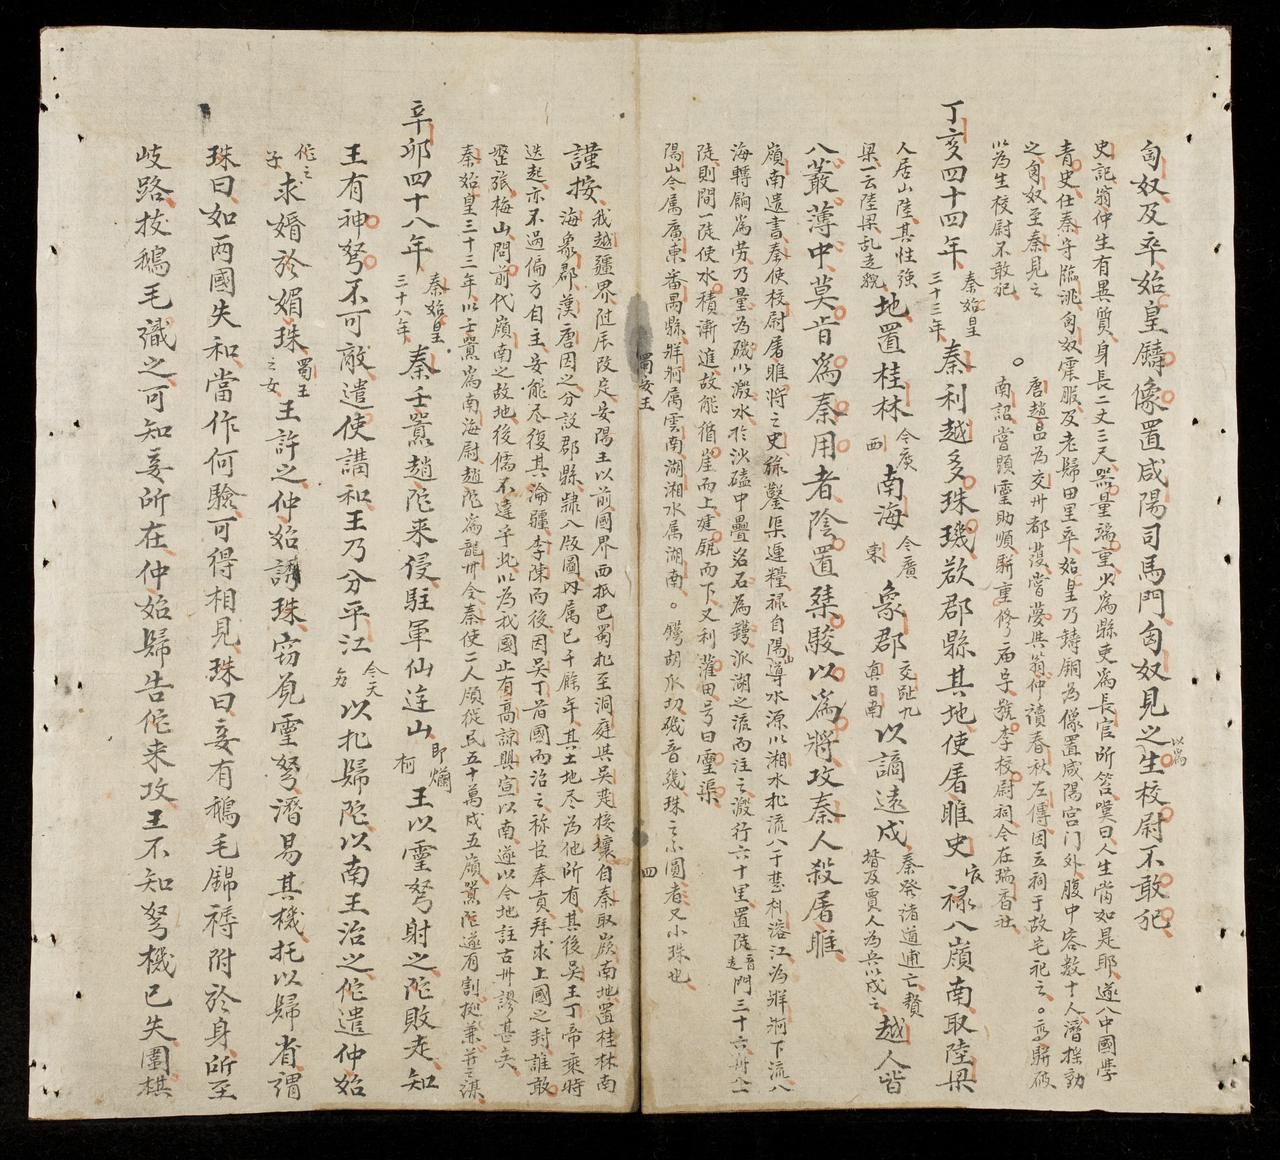 匈奴及卒始皇鑄像置咸陽司馬門匈奴見之以為生校尉不敢犯
史記翁仲生有異質身長二丈三尺器量端重火為縣吏為長官所笞嘆曰人生當如是耶遂入中國學
青史仕秦守臨洮匈奴震服及老歸田里卒始皇乃鑄銅為像置咸陽宮门外腹中容数十人潛摇動
之匈奴至秦見之
以為生校尉不敢犯
唐趙昌為交州都護嘗夢與翁仲讀春秋左傳因立祠于故宅祀之。高駢破
南詔嘗顕霊助順駢重修庙宇號李校尉祠今在瑞香社
丁亥四十四年
秦始皇
三十三年
秦利越多珠璣欲郡縣其地使屠睢史
祿入嶺南取陸梁
人居山陸其性強
梁一云陸梁乱走貌
地置桂林
今廣
西
南海
今廣
東
象郡
交趾九
真日南
以謫遠戍
秦発诸道逋亡贅
壻及賈人為兵以戍之
越人皆
入叢薄中莫肯為秦用者陰置桀駿以為將攻秦人殺屠睢
嶺南遺書秦使校尉屠睢將之史祿鑿渠運糧祿自陽山導水源以湘水北流入于楚
海轉餉為劳乃量為磯以激水於沙磕中疊
徒則間一陡使水積漸進故能循崖而上建瓴而下又利灌田号曰霊渠
陽山今属廣東番禺縣牂牁属雲南湖湘水属湖南。
蜀安王
四
謹按
我越疆界
安陽王以前國界西抵巴蜀北至洞庭與吳楚接壤自秦取嶺南地置桂林南
海象郡漢唐因之分設郡縣隸入版圖内属已千餘年其土地尽為他所有其後吳王丁帝乘時
迭起亦不過偏方自主安能尽復其淪疆李陳而後因吳丁旧國而治之称臣奉貢拜求上國之封誰敢
梅山問前代嶺南之故地後儒不達乎此以為我國止有高諒興宣以南遂以今地註古州謬甚矣
秦始皇三十三年以壬囂為南海尉趙陀為龍川令秦使二人領徒民五十萬戍五嶺囂陀遂有割據兼并之謀
辛卯四十八年
秦始皇
三十八年
秦壬囂趙陀来侵駐軍仙逰山
即爛
柯
王以霊弩射之陀敗走知
王有神弩不可敵遣使講和王乃分平江
今天
以北歸陀以南王治之佗遣仲始
佗之
子
求婚於媚珠
蜀王
之女
王許之仲始誘珠窃覓霊弩潛易其機托以歸省謂
珠曰如两國失和當作何驗可得相見珠曰妾有鵝毛錦褥附於身所至
岐路拔鵝毛識之可知妾所在仲始歸告佗来攻王不知弩機已失圍棋